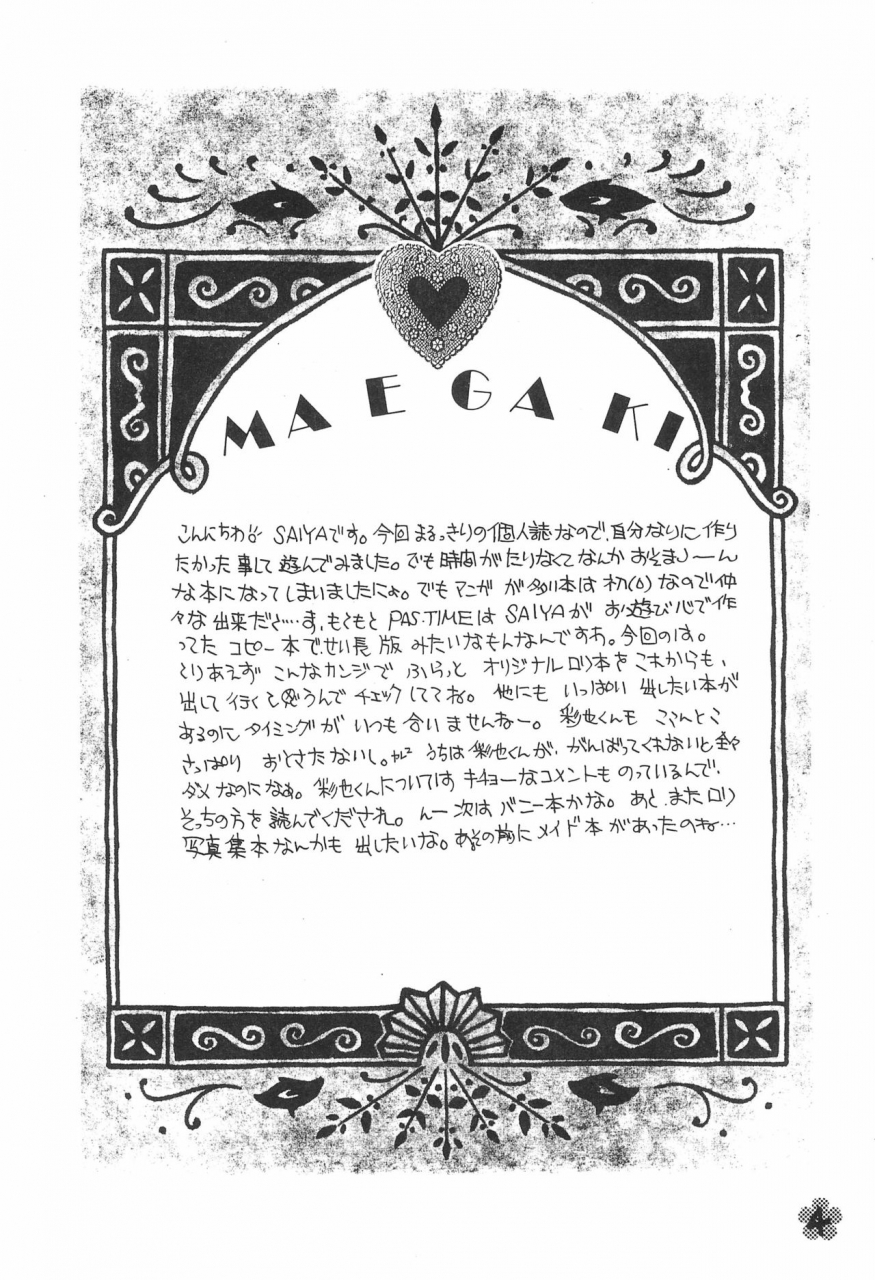 MAEGAKI
こんにちわ!! SAIYAです。今回まるっきりの個人誌なので、自分なりに作り
たかった事して遊んでみました。でも時間がたりなくてなんかおそまつ〜ん
な本になってしまいましたにょ。でもマンガが多い本は初(の)なので仲
々な出来だと…ま、もともとPAS.TIMEはSAIYAがお遊び心で作
ってたコピー本でせい長版みたいなもんなんですわ。今回のは。
とりあえずこんなカンジでふらっとオリジナルロリ本をこれからも、
出して行くと思うんでチェックしててね。他にもいっぱい出したい本が
あるのにタイミングがいつも合いませんねー。彩也くんもここんとこ
さっぱりおとさたないし。うちは彩也くんが、がんばってくれないと全々
ダメなのになぁ。彩也くんについてはキチョーなコメントものっているんで、
そっちの方を読んでくだされ。んー次はバニー本かな。あと、またロリ
写真集本なんかも出したいな。あその前にメイド本があったのね…
4